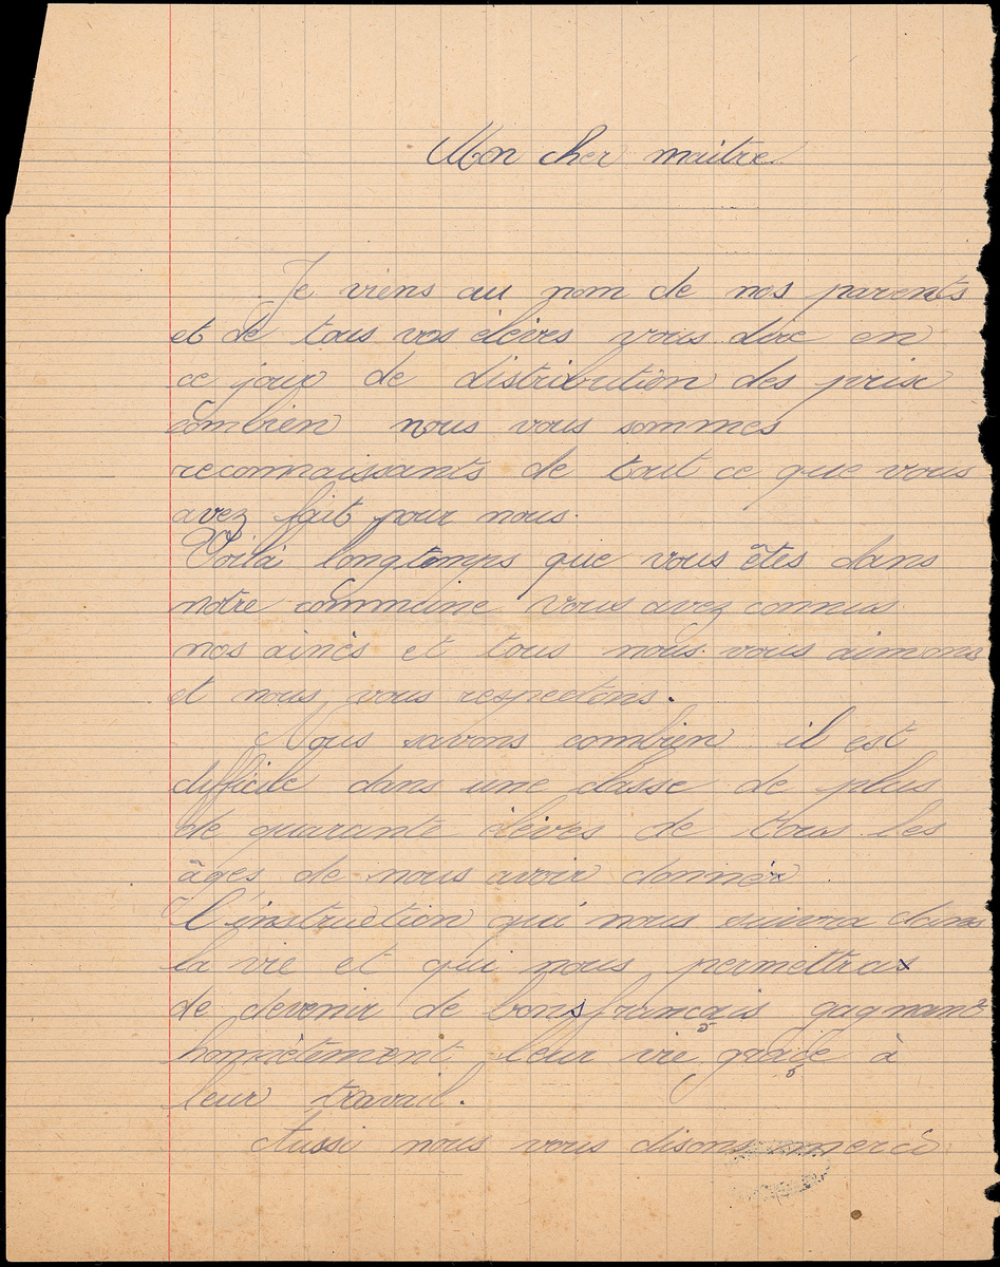 Mon cher maitre.
Je viens au nom de nos parents
et de tous vos élèves vous dire en
ce jour de distribution des prix
combien nous vous sommes
reconnaissants de tout ce que vous
avez fait pour nous.
Voilà longtemps que vous êtes dans
notre commune vous avez connus
nos ainés et tous nous vous aimons
et nous vous respectons.
Nous savons combien il est
difficile dans une classe de plus
de quarante élèves de tous les
âges de nous avoir donner
l'instruction qui nous suivra dans
la vie et qui nous permettra
de devenir de bons français gagnant
honnêtement leur vie grâce à
leur travail.
Aussi nous vous disons merci